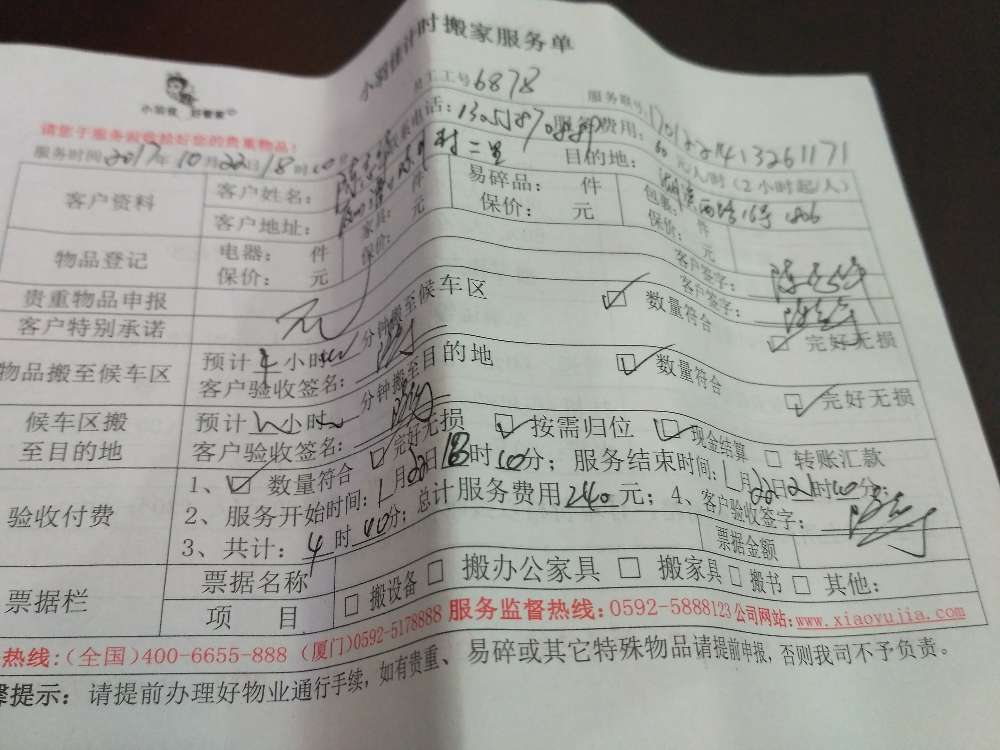 小羽佳计时搬家服务单
小羽佳 好管家
员工工号6878
服务账号:
请您于服务前收拾好您的贵重物品!
服务时间2017年10月22日18时00分
联系电话:
服务费用:60元/人/时(2小时起/人)
客户资料
客户姓名:
客户地址: 村二里
目的地: 1806
物品登记
电器: 件 家具: 件 易碎品: 件 包裹: 件
保价: 元 保价: 元 保价: 元 保价: 元
贵重物品申报
无
客户签字:
客户特别承诺
客户签字:
物品搬至候车区
预计 小时 分钟搬至候车区 数量符合 完好无损
客户验收签名:
候车区搬至目的地
预计 小时 分钟搬至目的地 数量符合 完好无损
客户验收签名:
验收付费
1、 数量符合 完好无损 按需归位 现金结算 转账汇款
2、服务开始时间: 月22日18时00分;服务结束时间: 月22日21时00分;
3、共计:4时00分;总计服务费用240元;4、客户验收签字:
票据栏
票据名称
票据金额
项 目
搬设备 搬办公家具 搬家具 搬书 其他:
热线:(全国)400-6655-888 (厦门)0592-5178888 服务监督热线:0592-5888123 公司网站:www.xiaoyujia.com
馨提示:请提前办理好物业通行手续,如有贵重、易碎或其它特殊物品请提前申报,否则我司不予负责。